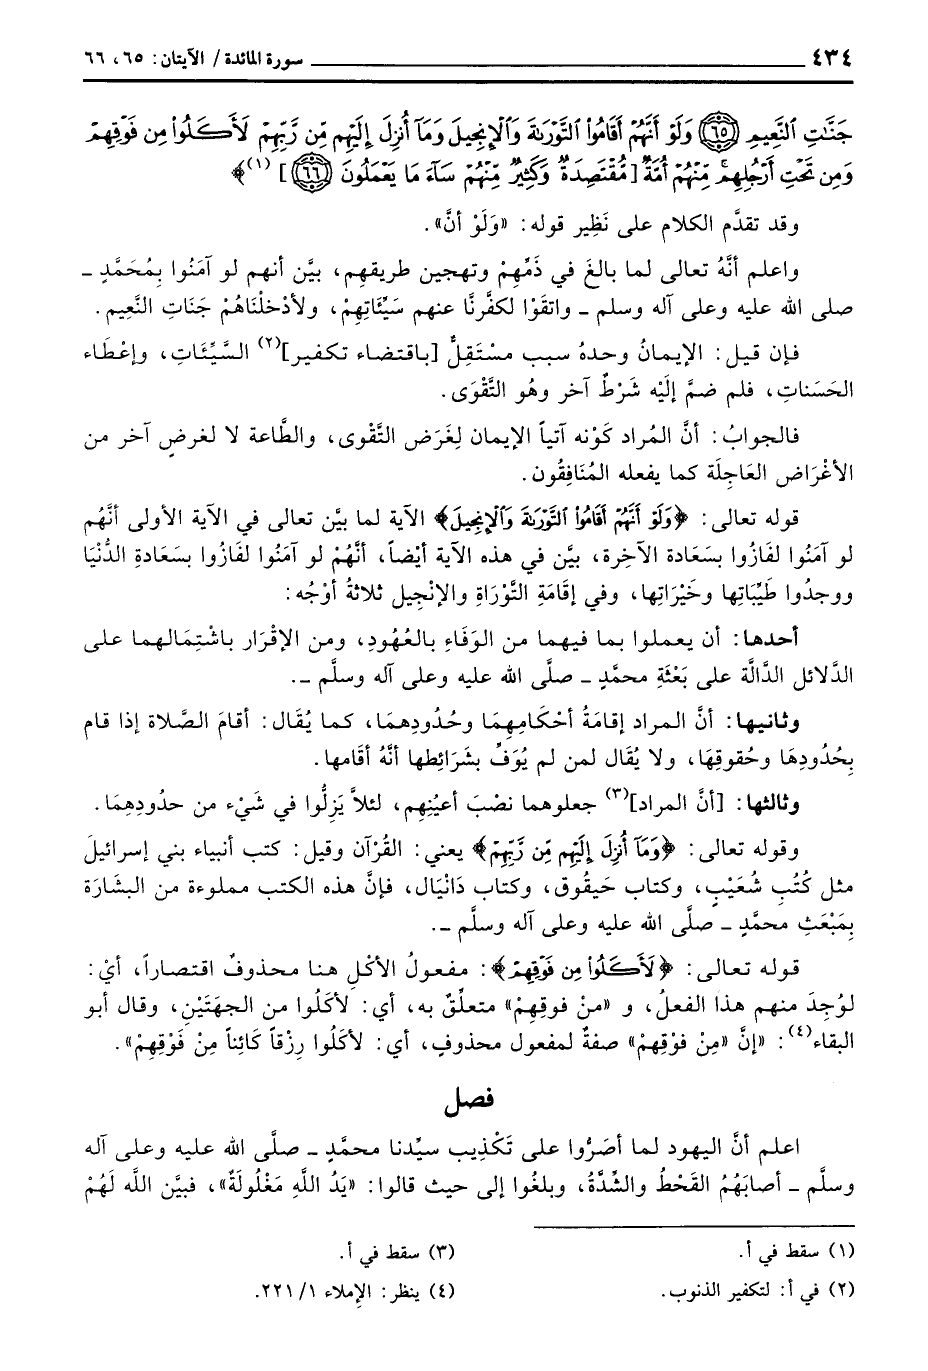 ٤٣٤ ـــــــــــــ سورة المائدة / الآيتان: ٦٥، ٦٦
جَنَّاتِ النَّعِيمِ ﴿٦٥﴾ وَلَوْ أَنَّهُمْ أَقَامُوا التَّوْرَاةَ وَالْإِنجِيلَ وَمَا أُنزِلَ إِلَيْهِم مِّن رَّبِّهِمْ لَأَكَلُوا مِن فَوْقِهِمْ
وَمِن تَحْتِ أَرْجُلِهِم مِّنْهُمْ أُمَّةٌ [مُّقْتَصِدَةٌ وَكَثِيرٌ مِّنْهُمْ سَاءَ مَا يَعْمَلُونَ ﴿٦٦﴾] (١)﴾
وقد تقدَّم الكلام على نَظِير قوله: «وَلَوْ أنَّ».
واعلم أنَّهُ تعالى لما بالغَ في ذَمِّهِمْ وتهجين طريقهم، بيَّن أنهم لو آمَنُوا بِمُحَمَّدٍ ـ
صلى الله عليه وعلى آله وسلم ـ واتقَوْا لكفَّرنَّا عنهم سَيِّئَاتِهِمْ، ولأدْخلْنَاهُمْ جَنَاتِ النَّعِيم.
فإن قيل: الإيمانُ وحدهُ سبب مسْتَقِلٌّ [باقتضاء تكفير](٢) السَّيِّئَاتِ، وإعْطَاء
الحَسَناتِ، فلم ضمَّ إلَيْه شَرْطٌ آخر وهُو التَّقْوَى.
فالجوابُ: أنَّ المُراد كَوْنه آتياً الإيمان لِغَرَض التَّقْوى، والطَّاعة لا لغرضٍ آخر من
الأغْرَاض العَاجِلَة كما يفعله المُنَافِقُون.
قوله تعالى: ﴿وَلَوْ أَنَّهُمْ أَقَامُوا التَّوْرَاةَ وَالْإِنجِيلَ﴾ الآية لما بيَّن تعالى في الآية الأولى أنَّهُم
لو آمَنُوا لفَازُوا بسَعَادة الآخِرة، بيَّن في هذه الآية أيْضاً، أنَّهُمْ لو آمَنُوا لفَازُوا بسَعَادةِ الدُّنْيَا
ووجدُوا طَيِّبَاتِها وخَيْرَاتِها، وفي إقَامَةِ التَّوْرَاةِ والإنْجيل ثلاثةُ أوْجُه:
أحدها: أن يعملوا بما فيهما من الوَفَاءِ بالعُهُودِ، ومن الإقْرَار باشْتِمَالهما على
الدَّلائل الدَّالَّة على بَعْثَةِ محمَّدٍ ـ صلَّى الله عليه وعلى آله وسلَّم ـ.
وثانيها: أنَّ المراد إقَامَةُ أحْكَامِهِمَا وحُدُودِهمَا، كما يُقَال: أقامَ الصَّلاة إذا قام
بِحُدُودِهَا وحُقوقِهَا، ولا يُقَال لمن لم يُوَفِّ بشَرَائِطها أنَّهُ أقَامها.
وثالثها: [أنَّ المراد](٣) جعلوهما نصْبَ أعيُنِهِم، لئلاَّ يَزِلُّوا في شَيْء من حدُودِهِمَا.
وقوله تعالى: ﴿وَمَا أُنزِلَ إِلَيْهِم مِّن رَّبِّهِمْ﴾ يعني: القُرْآن وقيل: كتب أنبياء بني إسرائيلَ
مثل كُتُبِ شُعَيْبٍ، وكتاب حَيقُوق، وكتاب دَانْيَال، فإنَّ هذه الكتب مملوءة من البشَارَة
بِمَبْعَثِ محمَّدٍ ـ صلَّى الله عليه وعلى آله وسلَّم ـ.
قوله تعالى: ﴿لَأَكَلُوا مِن فَوْقِهِمْ﴾: مفعولُ الأكْلِ هنا محذوفٌ اقتصاراً، أيْ:
لوُجِدَ منهم هذا الفعلُ، و «من فوقِهِمْ» متعلِّقٌ به، أي: لأكَلُوا من الجهتَيْنِ، وقال أبو
البقاء(٤): «إنَّ «مِنْ فَوْقِهمْ» صفةٌ لمفعول محذوفٍ، أي: لأكَلُوا رِزْقاً كَائِناً مِنْ فَوْقِهِمْ».
فصل
اعلم أنَّ اليهود لما أصَرُّوا على تَكْذِيب سيِّدنا محمَّدٍ ـ صلَّى الله عليه وعلى آله
وسلَّم ـ أصابَهُمُ القَحْطُ والشِّدَّةُ، وبلغُوا إلى حيث قالوا: «يَدُ اللَّهِ مَغْلُولَةٌ»، فبيَّن اللَّه لَهُمْ
(١) سقط في أ.
(٢) في أ: لتكفير الذنوب.
(٣) سقط في أ.
(٤) ينظر: الإملاء ١/ ٢٢١.